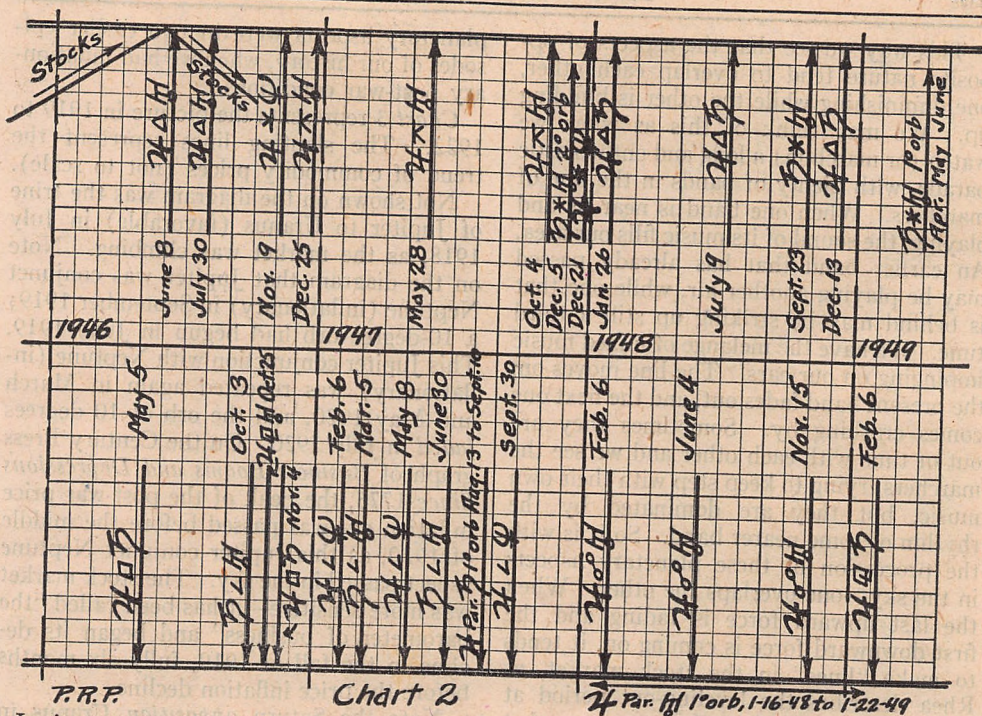 Stocks
Stocks
♃ △ ♅
♃ △ ♅
♃ ⚹
♃ ⚹ ♅
♃ ⚻ ♅
♃ ⚻ ♅
♄ ⚹ ♅ 2° orb
♃ △ ♄
♃ △ ♄
♄ ⚹ ♅
♃ △ ♄
♄ ⚹ ♅ 1° orb
Apr. May June
June 8
July 30
Nov. 9
Dec. 25
May 28
Oct. 4
Dec. 5
Dec. 21
Jan. 26
July 9
Sept. 23
Dec. 13
1946
1947
1948
1949
May 5
Oct. 13
Oct. 25
Nov. 4
Feb. 6
Mar. 5
May 8
June 30
♃ Par. ♄ 1° orb Aug. 13 to Sept. 10
Sept. 30
Feb. 6
June 4
Nov. 15
Feb. 6
♃ □ ♄
♄ ∠ ♅
♃ □ ♄
♃ ∠ ♆
♃ ∠ ♅
♃ ∠ ♆
♄ ∠ ♅
♃ ∠ ♆
♃ ☍ ♅
♃ ☍ ♅
♃ ☍ ♅
P.R.P.
Chart 2
♃ Par. ♅ 1° orb, 1-16-48 to 1-22-49